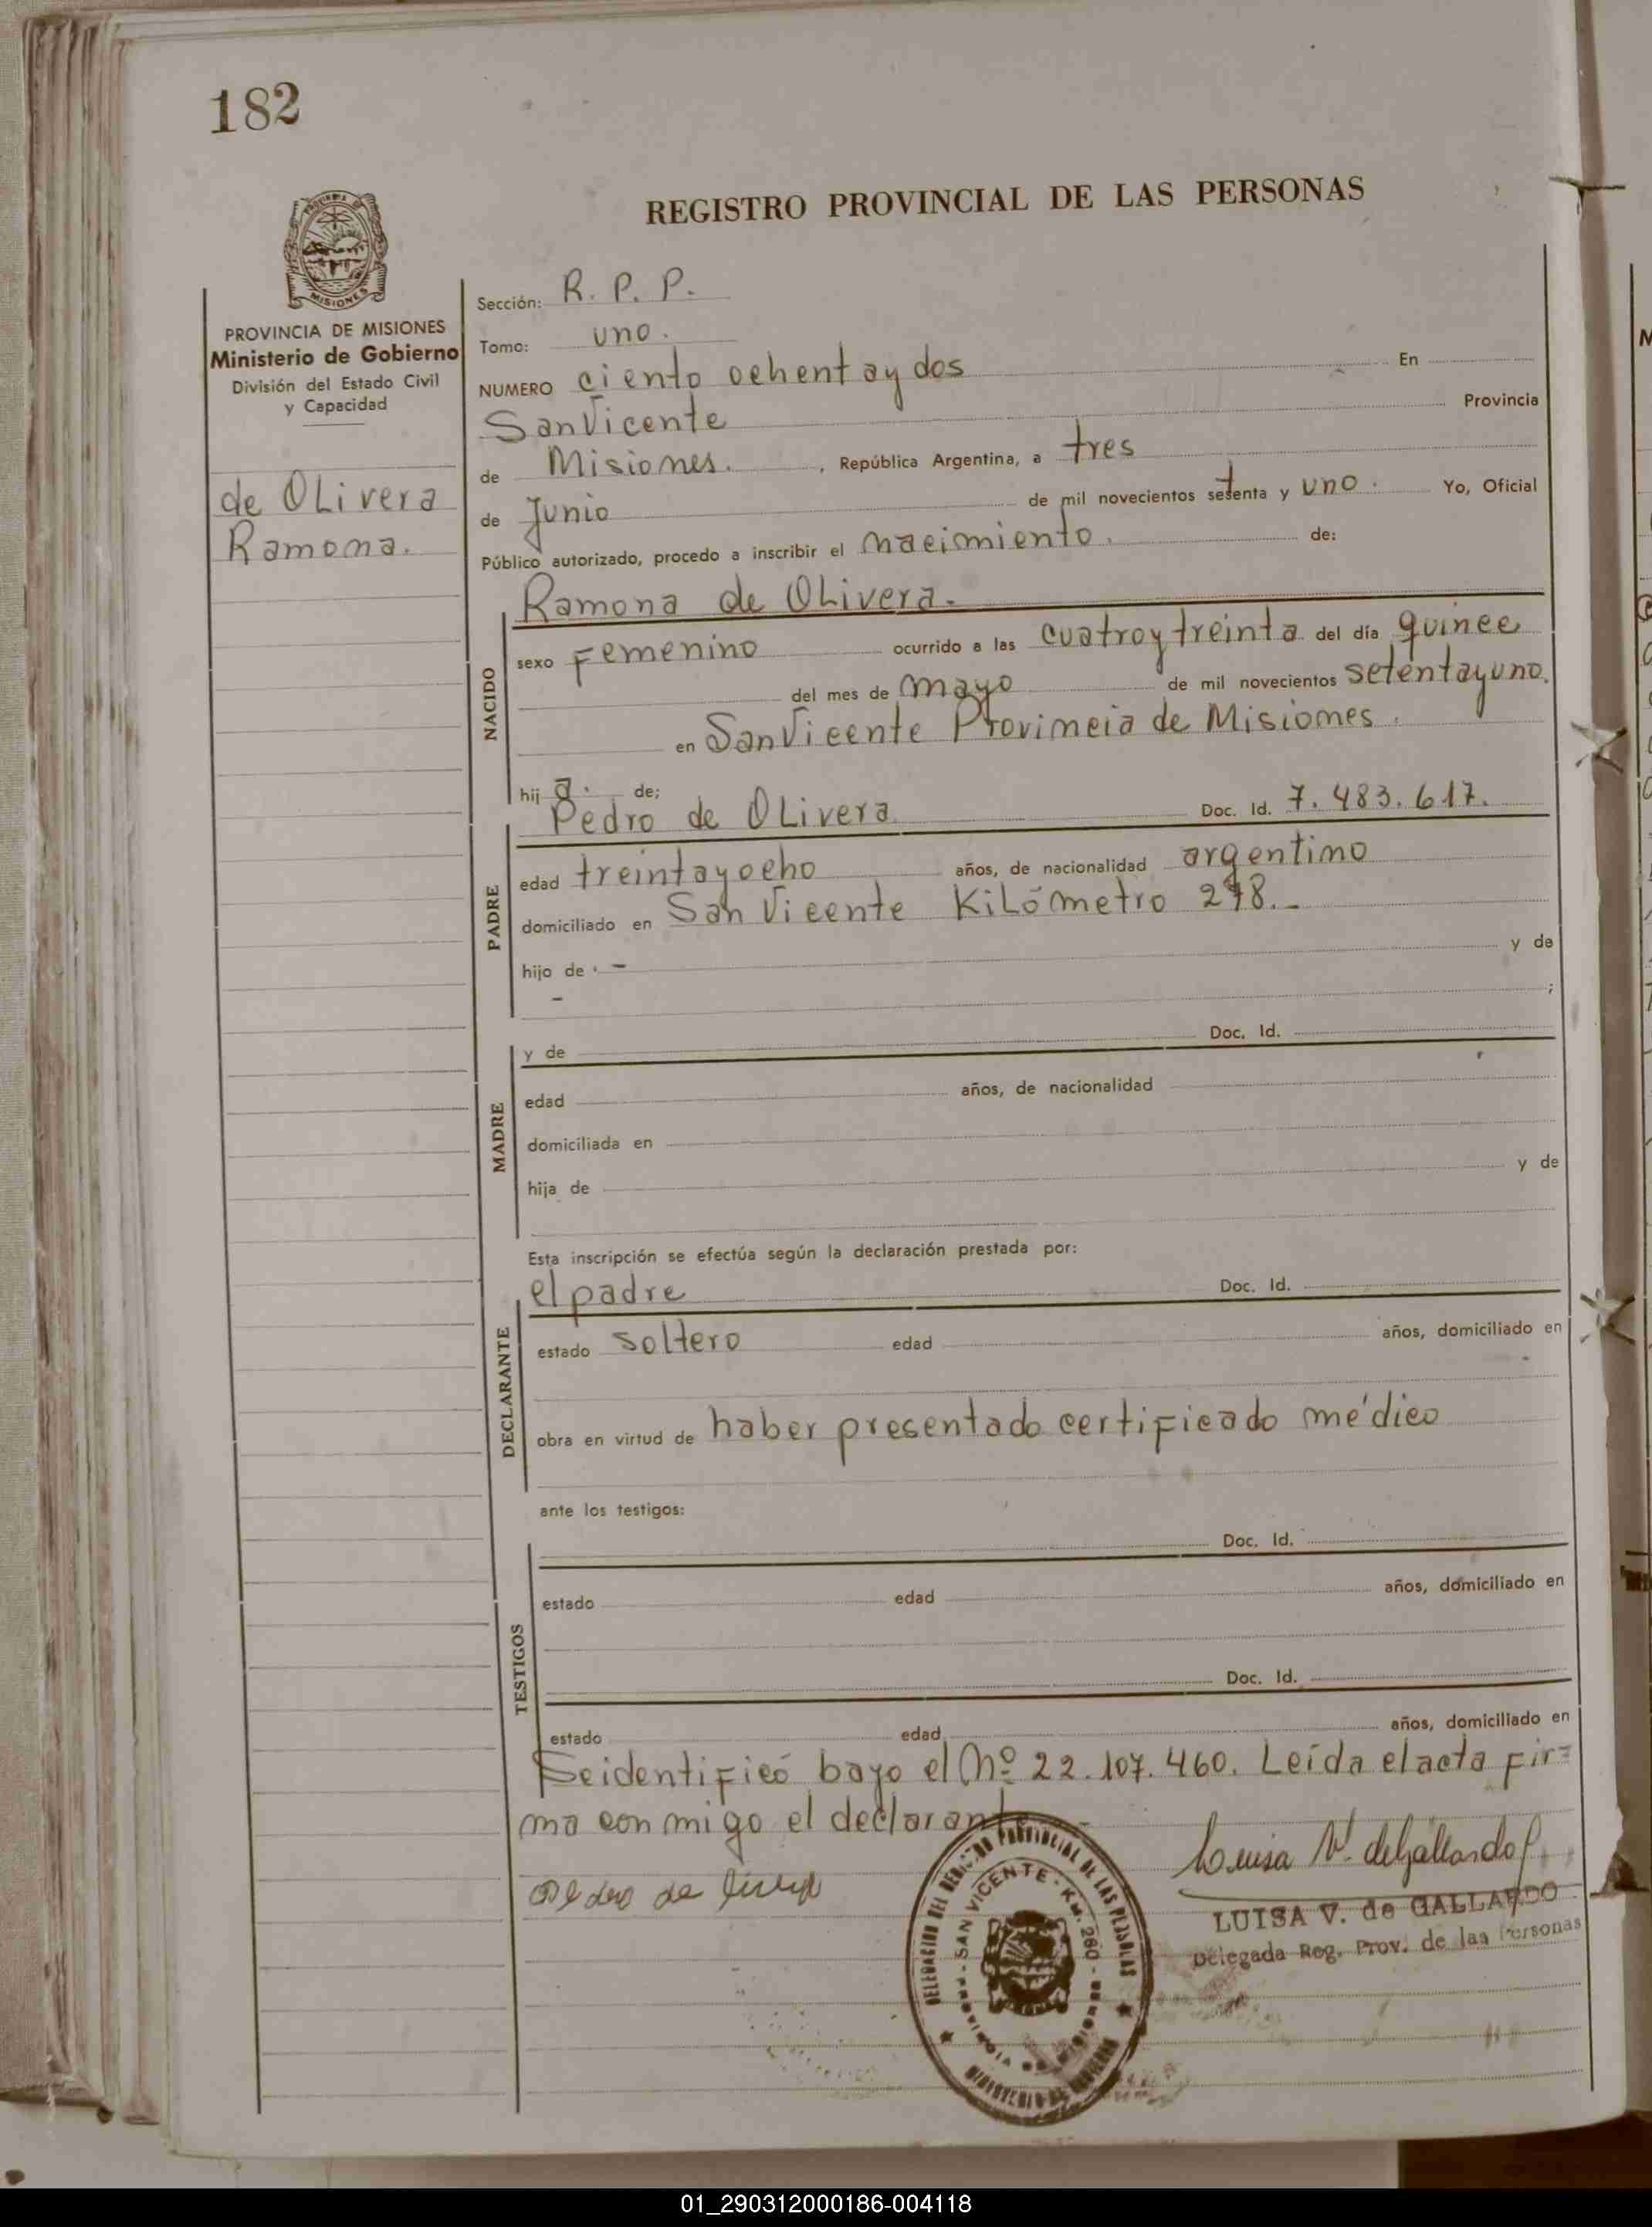 182
REGISTRO PROVINCIAL DE LAS PERSONAS
PROVINCIA DE
MISIONES
PROVINCIA DE MISIONES
Ministerio de Gobierno
División del Estado Civil
y Capacidad
de OLivera
Ramona.
Sección: R. P. P.
Tomo: uno.
NUMERO ciento ochentaydos En
San Vicente Provincia
de Misiones. , República Argentina, a tres
de Junio de mil novecientos setenta y uno. Yo, Oficial
Público autorizado, procedo a inscribir el nacimiento. de:
Ramona de OLivera.
NACIDO
sexo Femenino ocurrido a las cuatroytreinta del día quince
del mes de mayo de mil novecientos setentayuno.
en San Vicente Provincia de Misiones.
hij a. de;
Pedro de OLivera Doc. Id. 7.483.617.
PADRE
edad treintayocho años, de nacionalidad argentino
domiciliado en San Vicente KiLómetro 278.-
hijo de - y de
- ;
y de Doc. Id.
MADRE
edad años, de nacionalidad
domiciliada en
hija de y de
Esta inscripción se efectúa según la declaración prestada por:
el padre Doc. Id.
DECLARANTE
estado soltero edad años, domiciliado en
obra en virtud de haber presentado certificado médico
ante los testigos:
Doc. Id.
TESTIGOS
estado edad años, domiciliado en
Doc. Id.
estado edad años, domiciliado en
Seidentificó bayo el Nº 22.107.460. Leída elacta fir=
ma conmigo el declarante.-
Pedro de
Luisa V. deGallardo
LUISA V. de GALLARDO
Delegada Reg. Prov. de las Personas
DELEGACION DEL REGISTRO PROVINCIAL DE LAS PERSONAS
SAN VICENTE - KM. 260 -
MINISTERIO DE GOBIERNO
01_290312000186-004118